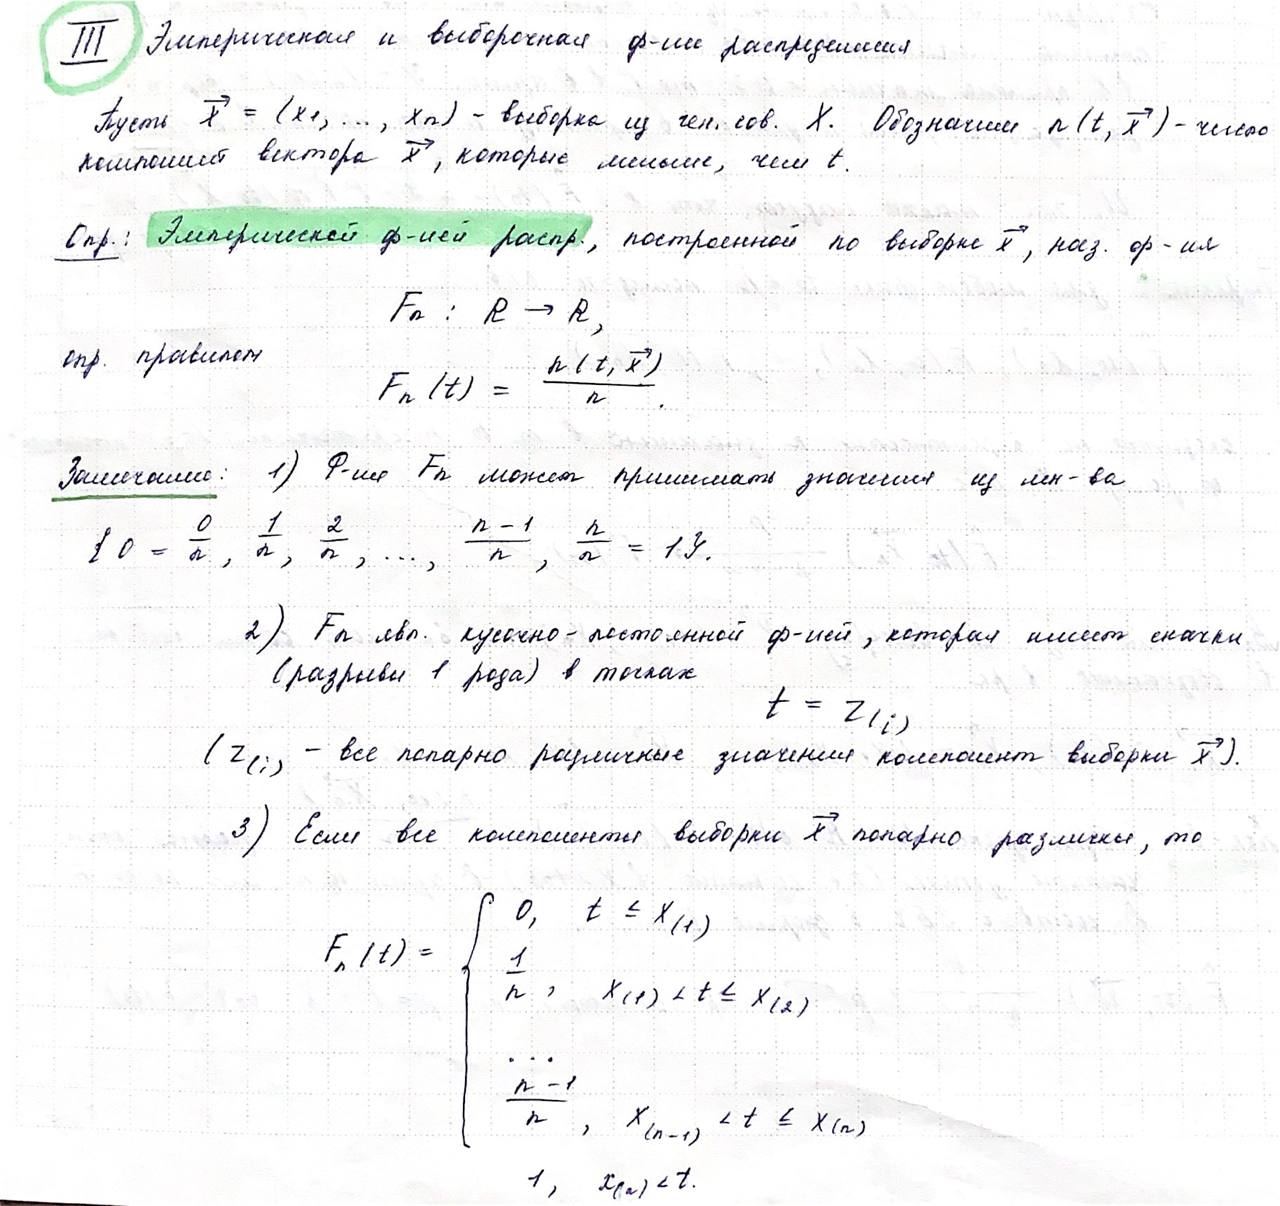 III Эмперическая и выборочная ф-ии распределения
Пусть x⃗ = (x₁, ..., xₙ) - выборка из ген. сов. X. Обозначим n(t, x⃗) - число
компонент вектора x⃗, которые меньше, чем t.
Опр.: Эмперической ф-ией распр., построенной по выборке x⃗, наз. ф-ия
Fₙ : R → R,
опр. правилом
Fₙ(t) = n(t, x⃗)/n.
Замечание: 1) Ф-ия Fₙ может принимать значения из мн-ва
{0 = 0/n, 1/n, 2/n, ..., (n-1)/n, n/n = 1}.
2) Fₙ явл. кусочно-постоянной ф-ией, которая имеет скачки
(разрывы 1 рода) в точках
t = z₍ᵢ₎
(z₍ᵢ₎ - все попарно различные значения компонент выборки x⃗).
3) Если все компоненты выборки x⃗ попарно различны, то
Fₙ(t) = { 0, t ≤ x₍₁₎
1/n, x₍₁₎ < t ≤ x₍₂₎
...
(n-1)/n, x₍ₙ₋₁₎ < t ≤ x₍ₙ₎
1, x₍ₙ₎ < t.